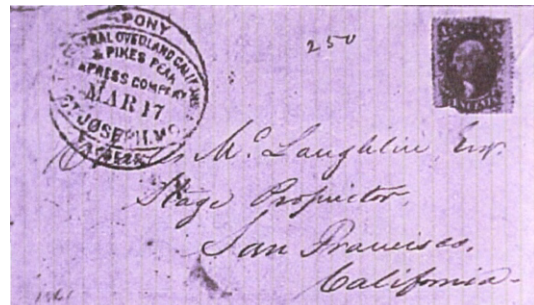 PONY
CENTRAL OVERLAND CALIFORNIA
& PIKES PEAK
EXPRESS COMPANY
MAR 17
ST JOSEPH. MO.
EXPRESS
250
McLaughlin, Esq.
Stage Proprietor,
San Francisco,
California.
1861